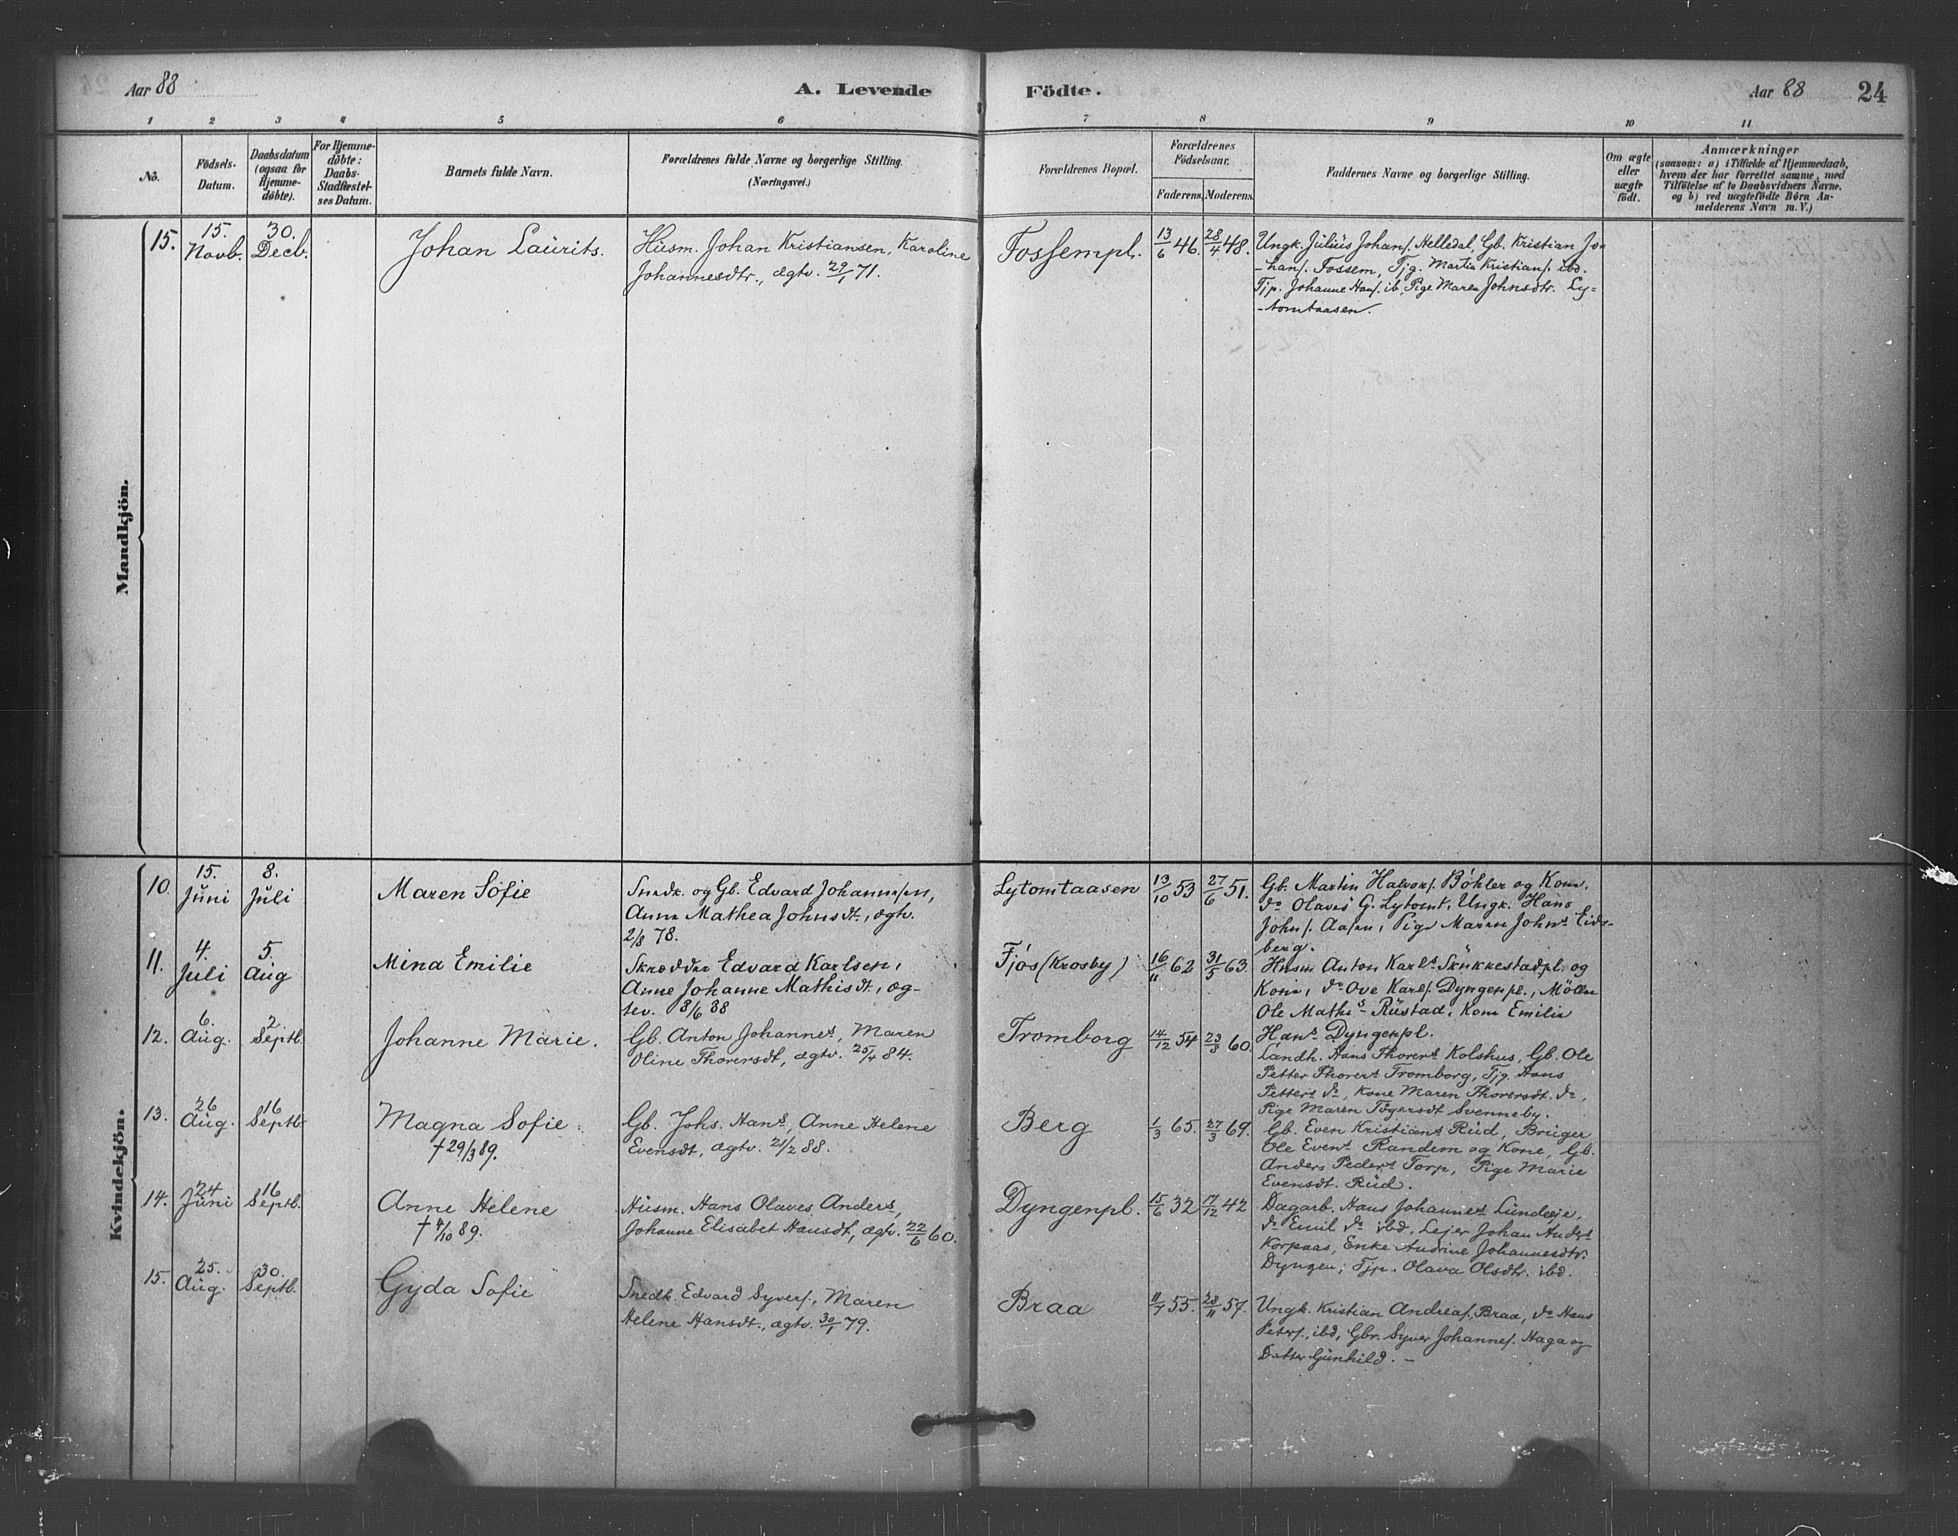 Aar 88
A. Levende
Födte.
Aar 88
24
1 2 3 4 5 6 7 8 9 10 11
No.
Födsels-Datum.
Daabsdatum (ogsaa for Hjemme-döbte).
For Hjemme-döbte: Daabs-Stadfæstel-ses Datum.
Barnets fulde Navn.
Forældrenes fulde Navne og borgerlige Stilling. (Næringsvei.)
Forældrenes Bopæl.
Forældrenes Födselsaar.
Faderens. Moderens.
Faddernes Navne og borgerlige Stilling.
Om ægte eller uægte födt.
Anmærkninger
(saasom: a) i Tilfælde af Hjemmedaab, hvem der har forrettet samme, med Tilföielse af to Daabsvidners Navne. og b) ved uægtefödte Börn An-melderens Navn m. V.)
Mandkjön.
15. 15. Novb. 30. Decb.
Johan Laurits.
Husm. Johan Kristiansen, Karoline
Johannesdtr., ægtv. 29/1 71.
Fossempl.
13/6 46. 28/4 48.
Ungk. Julius Johans. Helledal, Gb. Kristian Jo
-hans. Fossem, Tjg. Martin Kristians. ibd.
Tjp. Johanne Hans. ib, Pige Maren Johnsdtr. Ly=
-tomtaasen.
Kvindekjön.
10. 15. Juni 8. Juli
Maren Sofie
Snedk. og Gb. Edvard Johannesen,
Anne Mathea Johnsdt., ægtv.
2/8 78.
Lytomtaasen
13/10 53 27/6 51.
Gb. Martin Halvors. Böhler og Kone,
do Olaves G. Lytomt, Ungk. Hans
Johns. Aasen, Pige Maren Johns Eids-
berg.
11. 4. Juli 5. Aug
Mina Emilie
Skrædder Edvard Karlsen,
Anne Johanne Mathisdt, æg-
tev. 8/6 88
Fjøs (Krosby)
16/11 62 31/5 63.
Husm Anton Karls Skukkestadpl. og
Kone, do Ove Karls. Dyngenpl., Möller
Ole Mathis Rustad, Kone Emilie
Hans Dyngenpl.
12. 6. Aug. 2 Septb
Johanne Marie.
Gb. Anton Johannes, Maren
Oline Thorersdt, ægtv. 25/4 84.
Tromborg
14/12 54 23/3 60.
Landh. Hans Thorers Kolshus, Gb. Ole
Petter Thorers Tromborg, Tjg. Hans
Petters do, Kone Maren Thorersdt. do,
Pige Maren Togersdt Svenneby.
13. 26 Aug. 16 Septb
Magna Sofie.
† 29/3 89.
Gb. Johs. Hans, Anne Helene
Evensdt, ægtv. 21/2 88.
Berg
1/3 65. 27/3 69.
Gb. Even Kristians Rud, Bruger
Ole Evens Randem og Kone, Gb.
Anders Peders Torp, Pige Marie
Evensdt. Rud.
14. 24 Juni 16 Septb.
Anne Helene
† 4/10 89.
Husm. Hans Olaves Anders,
Johanne Elisabet Hansdt, ægtv. 22/6 60.
Dyngenpl.
15/6 32 17/12 42
Dagarb. Hans Johannes Lundeeie,
do Emil do ibd, Lejer Johan Anders
Korpaas, Enke Andrine Johannesdtr.
Dyngen, Tjp. Olava Olsdtr. ibd.
15. 25. Aug. 30. Septb.
Gyda Sofie
Snedk. Edvard Syvers., Maren
Helene Hansdt., ægtv. 30/1 79.
Braa
11/7 55. 28/11 57.
Ungk. Kristian Andreas. Braa, do Hans
Peters., ibd, Gbr. Syver Johannes. Haga og
Datter Gunhild. –